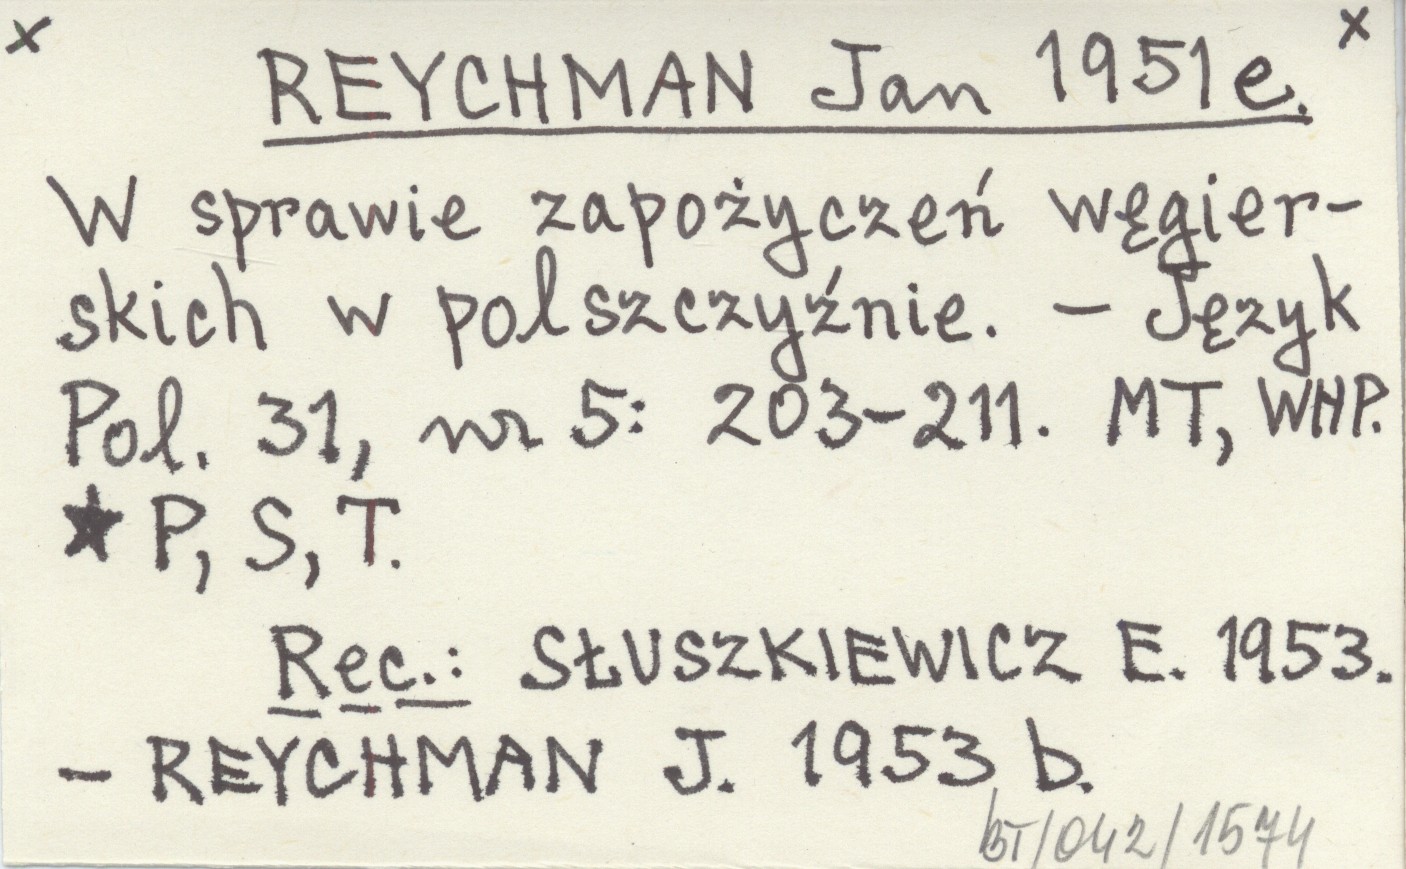 x x
REYCHMAN Jan 1951e.
W sprawie zapożyczeń węgier-
skich w polszczyźnie. – Język
Pol. 31, nr 5: 203–211. MT, WHP.
★ P, S, T.
Rec.: SŁUSZKIEWICZ E. 1953.
– REYCHMAN J. 1953 b.
BT/042/1574